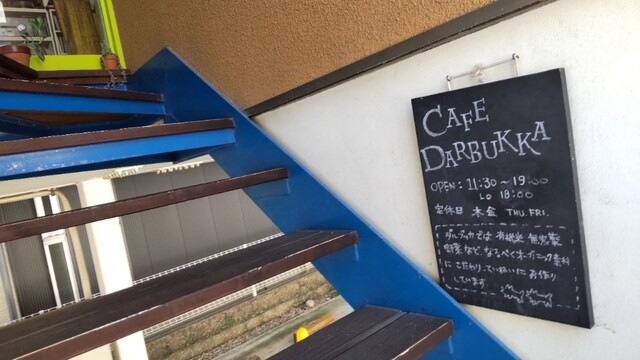 CAFE
DARBUKKA
OPEN: 11:30～19:00
LO 18:00
定休日 木金 THU.FRI.
ダルブッカでは 有機米 無農薬
野菜など、なるべくオーガニック素材
にこだわり、ていねいにお作り
しています。